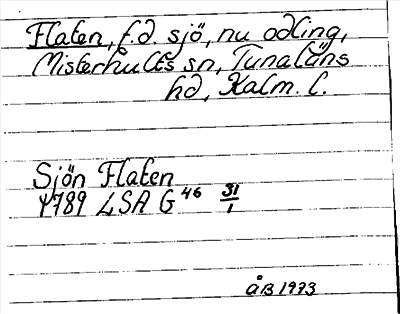 Flaten, f.d sjö, nu odling,
Misterhults sn, Tunaläns
hd, Kalm. l.
Sjön Flaten
1789 LSA G 46 31/1
ÅB 1973